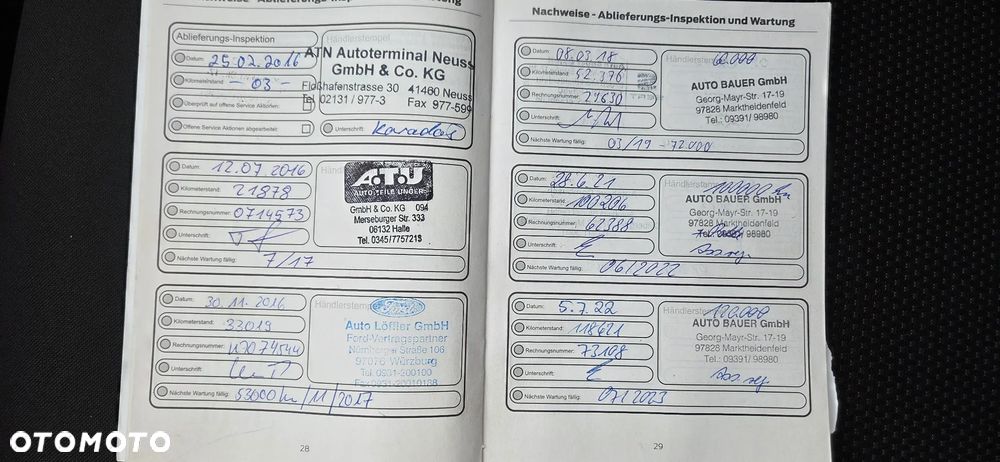 Nachweise - Ablieferungs-Inspektion und Wartung
Ablieferungs-Inspektion
Datum: 25.02.2016
Kilometerstand: - 03 -
Überprüft auf offene Service Aktionen:
Offene Service Aktionen abgearbeitet:
Händlerstempel
ATN Autoterminal Neuss
GmbH & Co. KG
Floßhafenstrasse 30 41460 Neuss
Tel 02131 / 977-3 Fax 977-599
Unterschrift:
Datum: 12.07 2016
Kilometerstand: 21878
Rechnungsnummer: 0714573
Unterschrift:
Nächste Wartung fällig: 7/17
ATU
AUTO TEILE UNGER
GmbH & Co. KG 094
Merseburger Str. 333
06132 Halle
Tel. 0345/7757218
Datum: 30.11.2016
Kilometerstand: 33019
Rechnungsnummer:
Unterschrift:
Nächste Wartung fällig: 53000 km/11/2017
Händlerstempel
Ford
Auto Löffler GmbH
Ford-Vertragspartner
Nürnberger Straße 106
97076 Würzburg
Tel. 0931-200190
Fax 0931-20019188
28
Nachweise - Ablieferungs-Inspektion und Wartung
Datum: 08.03.18
Kilometerstand: 52.376
Rechnungsnummer: 24630
Unterschrift:
Nächste Wartung fällig: 03/19 - 72.000
60.000
AUTO BAUER GmbH
Georg-Mayr-Str. 17-19
97828 Marktheidenfeld
Tel.: 09391/ 98980
Datum: 28.6.21
Kilometerstand: 100206
Rechnungsnummer: 62388
Unterschrift:
Nächste Wartung fällig: 06/2022
Händlerstempel
100000 km
AUTO BAUER GmbH
Georg-Mayr-Str. 17-19
97828 Marktheidenfeld
Tel.: 09391/ 98980
Datum: 5.7.22
Kilometerstand: 118621
Rechnungsnummer: 73108
Unterschrift:
Nächste Wartung fällig: 07/2023
Händlerstempel
120.000
AUTO BAUER GmbH
Georg-Mayr-Str. 17-19
97828 Marktheidenfeld
Tel.: 09391/ 98980
29
OTOMOTO